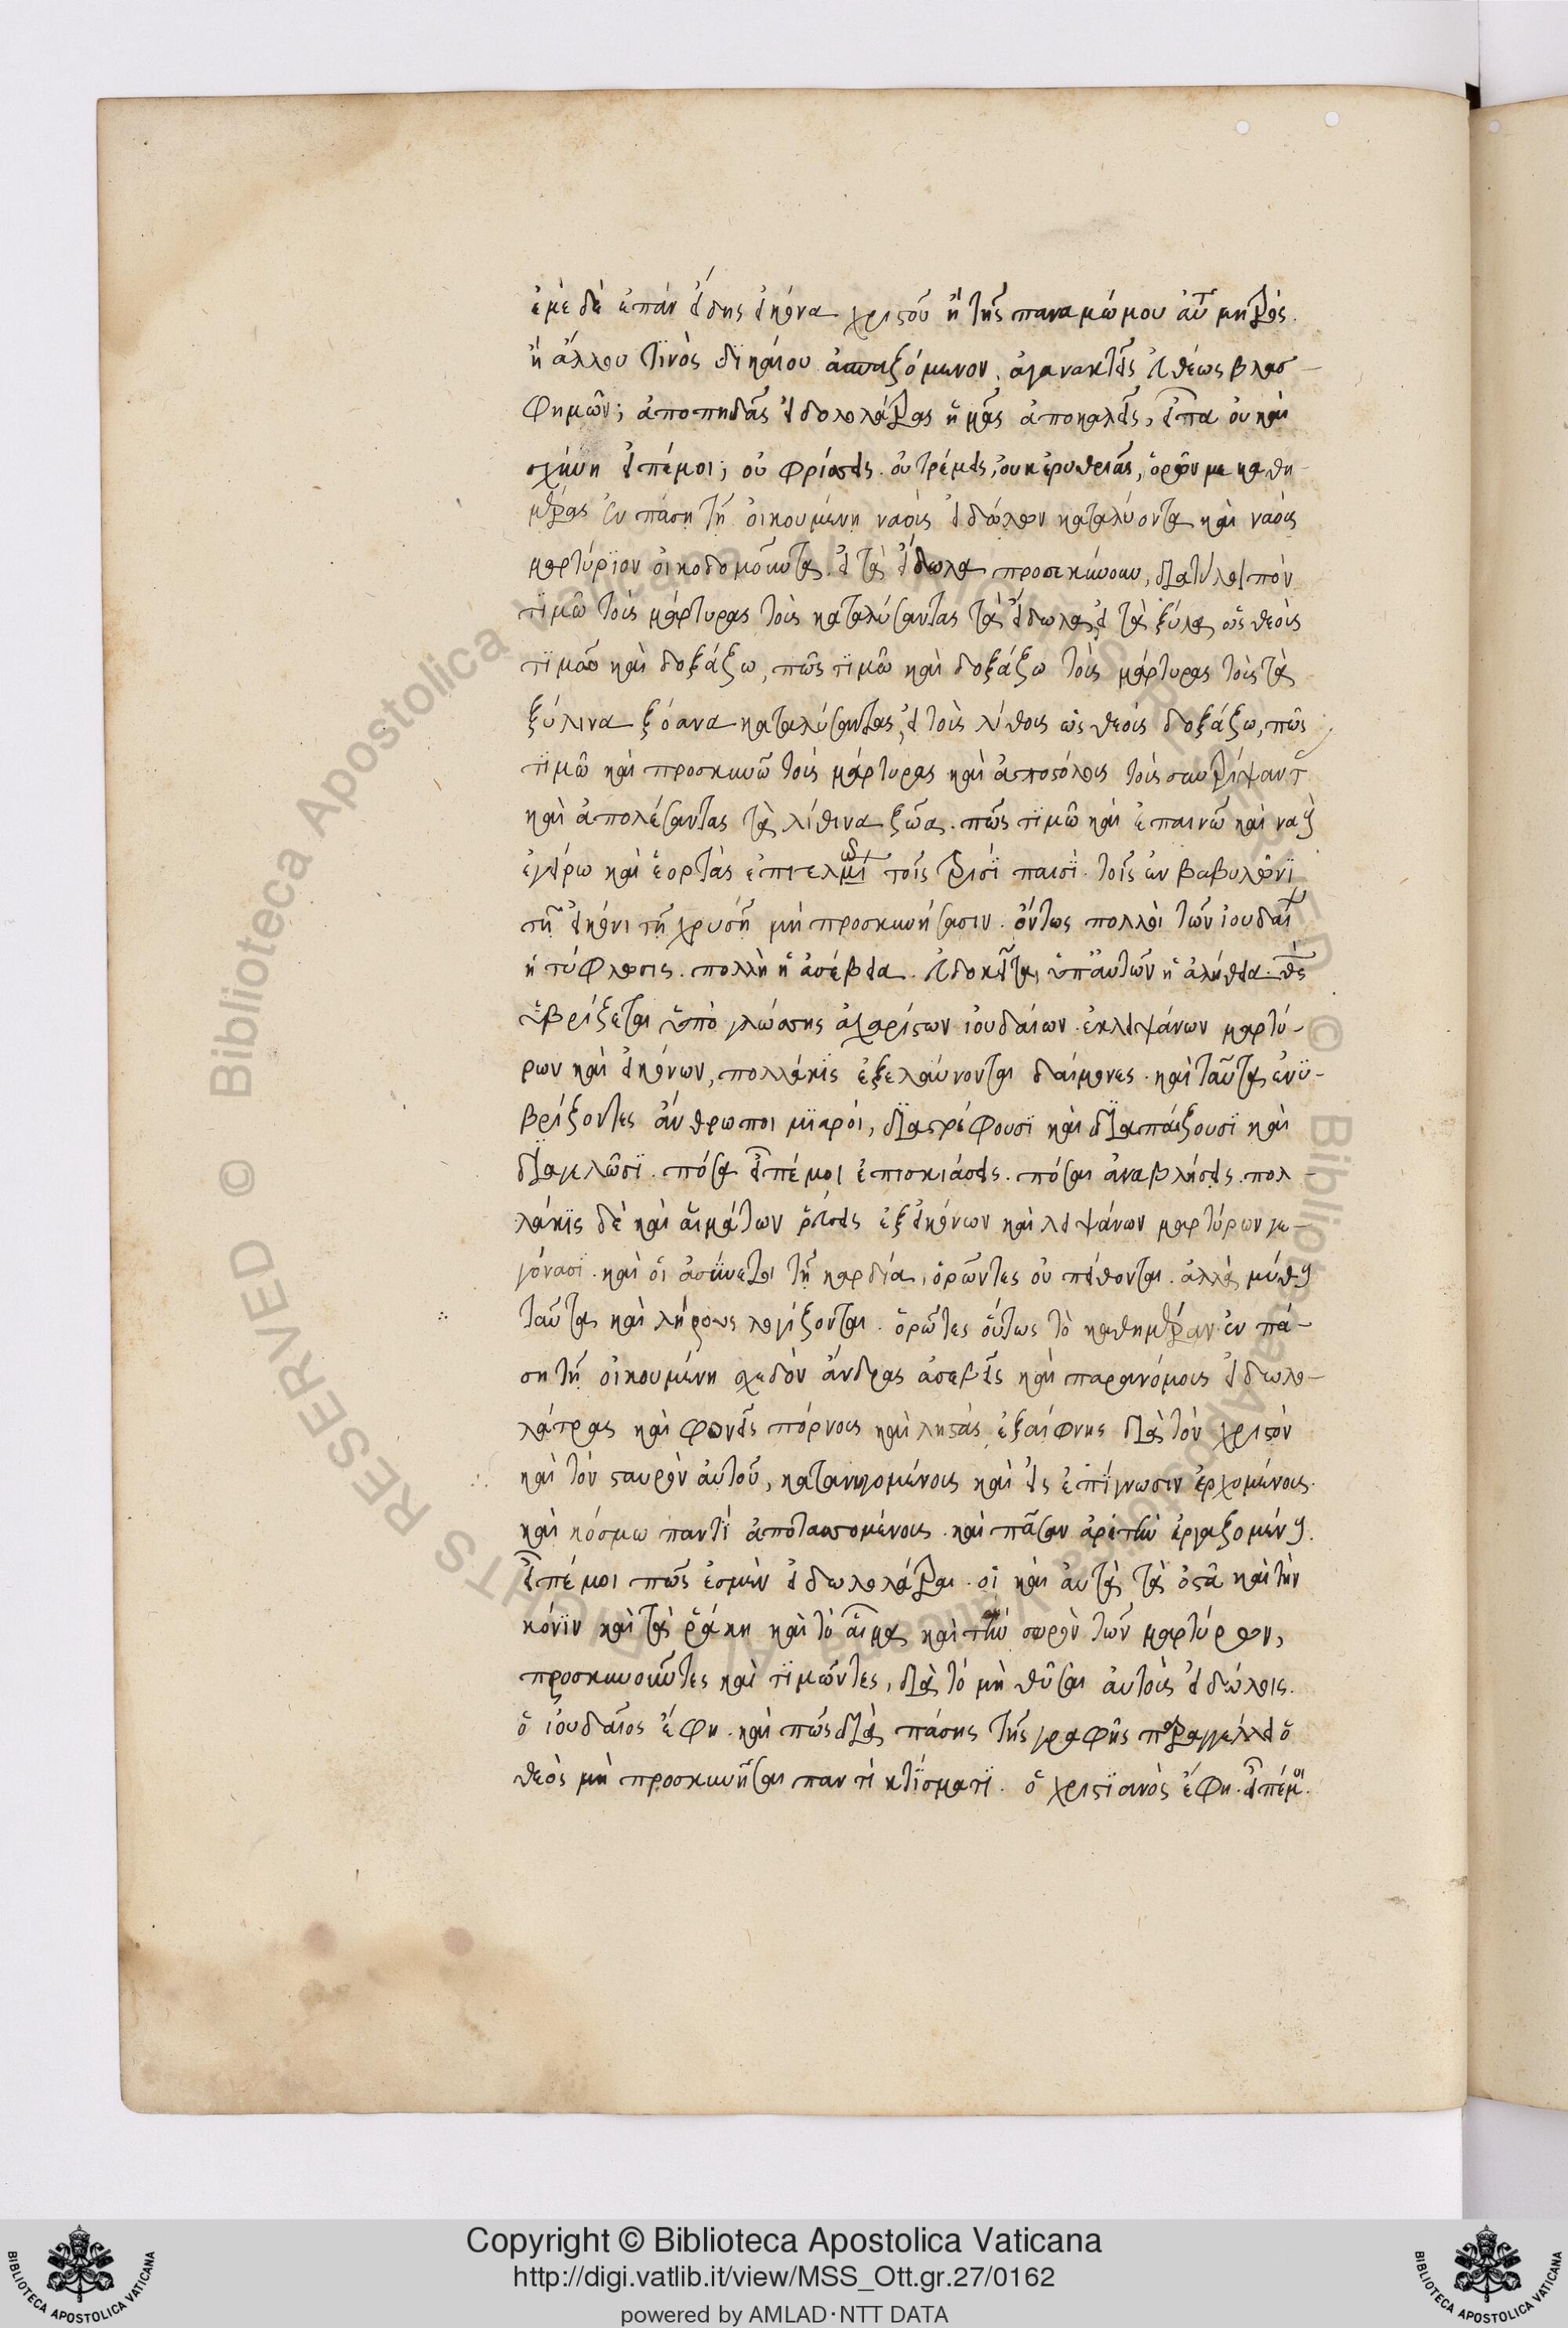 ἐμὲ δὲ ἐπὰν εἴδης εἰκόνα χριστοῦ ἢ τῆς παναμώμου αὐτ μητρὸς.
ἢ ἄλλου τινὸς δικαίου ἀσπαζόμενον. ἀγανακτεῖς εὐθέως βλασ-
φημῶν; ἀποπηδᾶς εἰδολολάτρας ἡμᾶς ἀποκαλεῖς, εἶτα οὐκ αἰ
σχύνη εἰπέ μοι; οὐ φρίσσεις. οὐ τρέμεις, οὐκ ἐρυθριᾶς, ὁρῶν με καθη-
μέρας ἐν πάσῃ τῇ οἰκουμένη ναοὺς εἰδώλων καταλύοντα καὶ ναοὺς
μαρτύριον οἰκοδομοῦντα. εἰ τὰ εἴδωλα προσεκύνουν, διατί λοιπὸν
τιμῶ τοὺς μάρτυρας τοὺς καταλύσαντας τὰ εἴδωλα; εἰ τὰ ξύλα ὡς θεοὺς
τιμάω καὶ δοξάζω, πῶς τιμῶ καὶ δοξάζω τοὺς μάρτυρας τοὺς τὰ
ξύλινα ξόανα καταλύσαντας; εἰ τοὺς λίθους ὡς θεοὺς δοξάζω, πῶς
τιμῶ καὶ προσκυνῶ τοὺς μάρτυρας καὶ ἀποστόλους τοὺς συντρίψαντ
καὶ ἀπολέσαντας τὰ λίθινα ζῶα. πῶς τιμῶ καὶ ἐπαινῶ καὶ ναοὺς
ἐγείρω καὶ ἑορτὰς ἐπιτελ τοῖς τρισὶ παισὶ. τοῖς ἐν βαβυλῶνι
τῇ εἰκόνι τῇ χρυσῇ μὴ προσκυνήσασιν. ὄντως πολλοὶ τῶν ἰουδαί
ἡ τύφλωσις. πολλὴ ἡ ἀσέβεια. ὑπ' αὐτῶν ἡ ἀλήθεια. θς
ὑβρίζεται ὑπὸ γλώσσης ἀχαρίστων ἰουδαίων. ἐκ λειψάνων μαρτύ-
ρων καὶ εἰκόνων, πολλάκις ἐξελαύνονται δαίμονες. καὶ ταῦτα ἐνϋ-
βρίζοντες ἄνθρωποι μιαροὶ, διαστρέφουσι καὶ διαπαίζουσι καὶ
διαγελῶσι. πόσαι εἰπέ μοι ἐπισκιάσεις. πόσαι ἀναβλήσεις. πολ-
λάκις δὲ καὶ αἱμάτων ῥεύσεις ἐξ εἰκόνων καὶ λειψάνων μαρτύρων γε-
γόνασι. καὶ οἱ ἀσύνετοι τῇ καρδία, ὁρῶντες οὐ πείθονται. ἀλλὰ μύθους
ταῦτα καὶ λήρους λογίζονται. ὁρῶτες οὕτως τὸ καθημέραν ἐν πά-
ση τῇ οἰκουμένη σχεδὸν ἄνδρας ἀσεβεῖς καὶ παρανόμους εἰδωλο-
λάτρας καὶ φονεῖς πόρνους καὶ ληστὰς ἐξαίφνης διὰ τὸν χριστὸν
καὶ τὸν σταυρὸν αὐτοῦ, κατανυγομένους καὶ εἰς ἐπίγνωσιν ἐρχομένους.
καὶ κόσμω παντὶ ἀποτασσομένους. καὶ πᾶσαν ἀρετὴν ἐργαζομένους.
εἰπέ μοι πῶς ἐσμὲν εἰδωλολάτραι. οἱ καὶ αὐτὰ τὰ ὀστᾶ καὶ τὴν
κόνιν καὶ τὰ ῥάκη καὶ τὸ αἷμα καὶ τὴν σορὸν τῶν μαρτύρων,
προσκυνοῦντες καὶ τιμῶντες, διὰ τὸ μὴ θῦσαι αὐτοὺς εἰδώλοις.
ὁ ἰουδαῖος ἔφη. καὶ πῶς διὰ πάσης τῆς γραφῆς παραγγέλλει ὁ
θεὸς μὴ προσκυνῆσαι παντὶ κτίσματι. ὁ χριστιανὸς ἔφη. εἰπέ μοι.
Copyright © Biblioteca Apostolica Vaticana
http://digi.vatlib.it/view/MSS_Ott.gr.27/0162
powered by AMLAD·NTT DATA